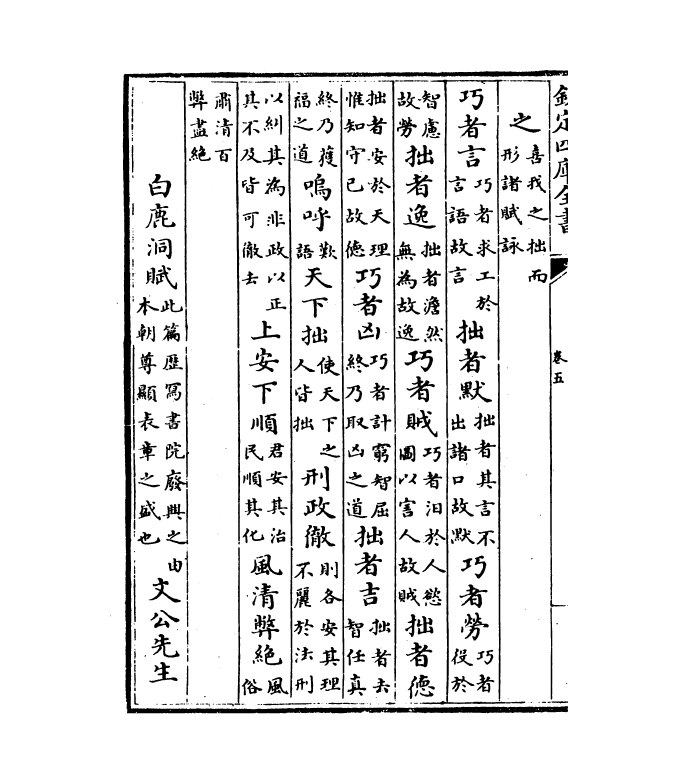 欽定四庫全書 卷五
之喜我之拙而形諸賦詠
巧者言巧者求工於言語故言拙者默拙者其言不出諸口故默巧者勞巧者役於
智慮故勞拙者逸拙者澹然無為故逸巧者賊巧者汨於人慾圖以害人故賊拙者德
拙者安於天理惟知守已故德巧者凶巧者計窮智屈終乃取凶之道拙者吉拙者去智任真
終乃獲福之道嗚呼歎語天下拙使天下之人皆拙刑政徹則各安其理不麗於法刑
以糾其為非政以正其不及皆可徹去上安下順君安其治民順其化風清弊絶風俗
肅清百弊盡絶
白鹿洞賦此篇歴冩書院廢興之由本朝尊顯表章之盛也文公先生